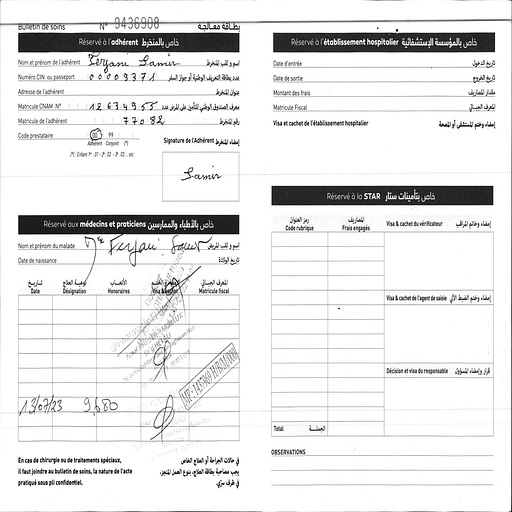 Bulletin de soins N° 9436908 بطاقة معالجة
Réservé à l'adhérent خاص بالمنخرط
Nom et prénom de l'adhérent Feryani Samir اسم و لقب المنخرط
Numéro CIN ou passeport 00009371 عدد بطاقة التعريف الوطنية أو جواز السفر
Adresse de l'adhérent عنوان المنخرط
Matricule CNAM N° 12634955 معرف الصندوق الوطني للتأمين على المرض عدد
Matricule de l'adhérent 77082 رقم المنخرط
Code prestataire 00 99
Adhérent Conjoint (*)
(*) : Enfant 1er : 01 - 2 : 02 - 3 : 03 ... etc
Signature de l'Adhérent إمضاء المنخرط
Samir
Réservé aux médecins et praticiens خاص بالأطباء والممارسين
Nom et prénom du malade Mr Feryani Samir اسم و لقب المريض
Date de naissance تاريخ الولادة
تاريخ Date
نوعية العلاج Désignation
الأتعاب Honoraires
Visa & cachet
المعرف الجبائي Matricule fiscal
13/07/23 9,680
En cas de chirurgie ou de traitements spéciaux,
il faut joindre au bulletin de soins, la nature de l'acte
pratiqué sous pli confidentiel.
في حالات الجراحة أو العلاج الخاص
يجب مصاحبة بطاقة العلاج، بنوع العمل المنجز،
في ظرف سري.
Réservé à l'établissement hospitalier خاص بالمؤسسة الإستشفائية
Date d'entrée تاريخ الدخول
Date de sortie تاريخ الخروج
Montant des frais مقدار المصاريف
Matricule Fiscal المعرف الجبائي
Visa et cachet de l'établissement hospitalier إمضاء وختم المستشفى أو المصحة
Réservé à la STAR خاص بتأمينات ستار
رمز العنوان Code rubrique
المصاريف Frais engagés
Visa & cachet du vérificateur إمضاء وخاتم المراقب
Visa & cachet de l'agent de saisie إمضاء وختم الضبط الآلي
Décision et visa du responsable قرار وإمضاء المسؤول
Total الجملة
OBSERVATIONS